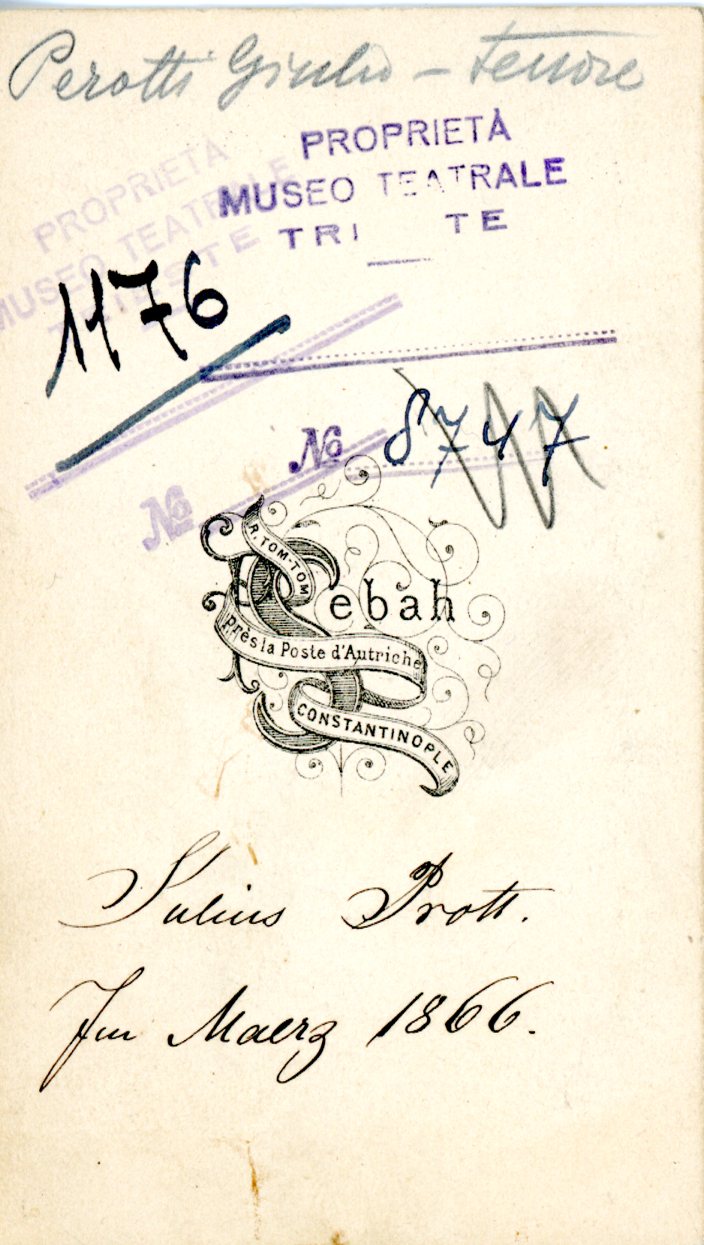 Perotti Giulio - tenore
PROPRIETÀ
MUSEO TEATRALE
TRI TE
PROPRIETÀ
MUSEO TEATRALE
TRIESTE
1176
№ 8747
№
R. TOM-TOM
Sebah
près la Poste d'Autriche
CONSTANTINOPLE
Julius Prott.
Im Maerz 1866.